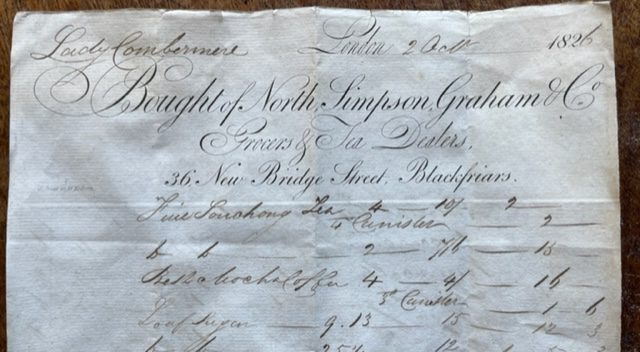 Lady Combermere London 2 Octr 1826
Bought of North, Simpson, Graham & Co
Grocers & Tea Dealers,
36 New Bridge Street, Blackfriars.
Fine Souchong Tea 4 — 10/ 2 —
4 Canister — 2 —
2 — 7/6 — 15 —
Best Mocha Coffee 4 — 4/ — 16 —
3 Canister — 1 6
Loaf Sugar — 9.13 — 15 — 12 3